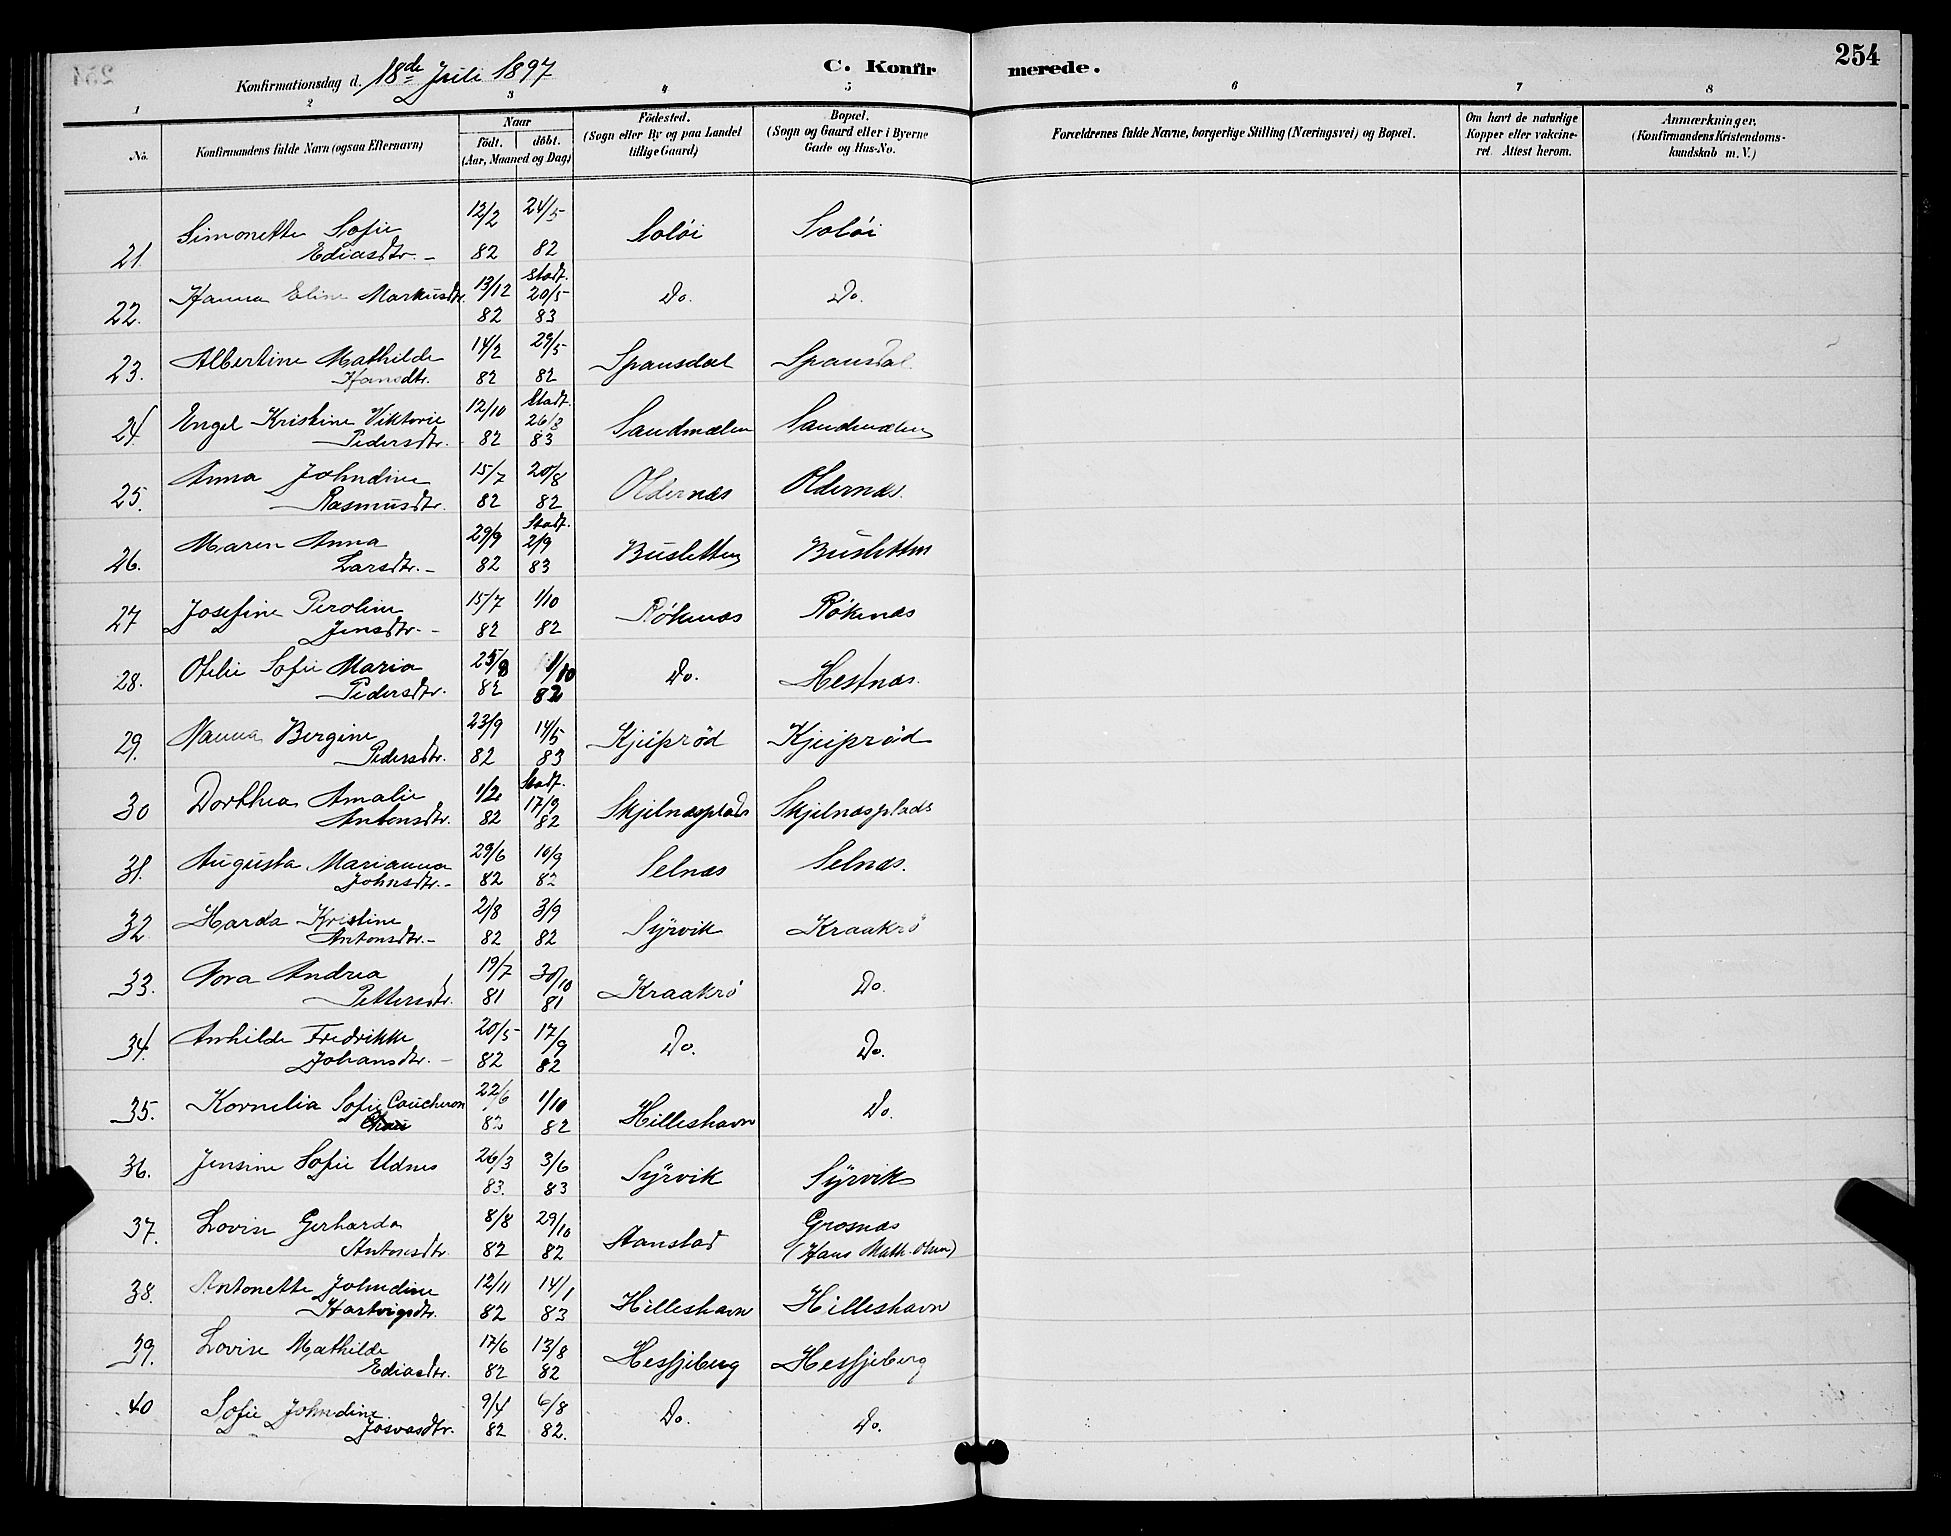 254
Konfirmationsdag d. 18de Juli 1897
C. Konfirmerede.
1 2 3 4 5 6 7 8
No.
Konfirmandens fulde Navn (ogsaa Efternavn)
Naar
födt. döbt.
(Aar, Maaned og Dag)
Födested.
(Sogn eller By og paa Landet
tillige Gaard)
Bopæl.
(Sogn og Gaard eller i Byerne
Gade og Hus-No.
Forældrenes fulde Navne, borgerlige Stilling (Næringsvei) og Bopæl.
Om havt de naturlige
Kopper eller vakcine-
ret. Attest herom.
Anmærkninger.
(Konfirmandens Kristendoms-
kundskab m. V.)
21. Simonette Sofie 12/2 24/5 Soløi Soløi
Ediasdtr. – 82 82
22. Hanna Eline Markusdtr. 13/12 Stadf. 20/5 Do. Do.
82 83
23. Albertine Mathilde 14/2 29/5 Spansdal Spansdal.
Hansdtr. 82 82
24. Engel Kristine Viktorie 12/10 Stadf. 26/8 Sandmælen Sandmælen
Pedersdtr. 82 83
25. Anna Johndine 15/7 20/8 Oldernæs Oldernæs.
Rasmusdtr. 82 82
26. Maren Anna 29/9 Stadf. 2/9 Busletten Busletten
Larsdtr. – 82 83
27 Josefine Peroline 15/7 1/10 Røkenæs Røkenæs
Jensdtr. – 82 82
28. Otelie Sofie Maria 25/8 1/10 Do. Hestnæs.
Pedersdtr. 82 82
29. Nanna Bergine 23/9 14/5 Kjeiprød Kjeiprød
Pedersdtr. 82 83
30 Dorthea Amalie 1/2 Stadf. 17/9 Skjelnæsplads Skjelnæsplads
Antonsdtr. 82 82
31. Augusta Marianna 29/6 10/9 Selnæs Selnæs.
Johnsdtr. – 82 82
32 Harda Kristine 2/8 3/9 Syrvik Kraakrö
Antonsdtr. – 82 82
33. Nora Andrea 19/7 30/10 Kraakrö Do.
Pettersdtr. 81 81
34. Anhilde Fredrikke 20/5 17/9 Do. Do.
Johansdtr. – 82 82
35. Kornelia Sofie Caucheron 22/6 1/10 Hilleshavn Do.
82 82
36. Jensine Sofie Udnes 26/3 3/6 Syrvik Syrvik
83. 83
37. Lovise Gerharda 8/8 29/10 Stanstad Grosnæs
Antonsdtr. 82 82 (Hans Math. Olsen)
38. Antonette Johndine 12/11 14/1 Hilleshavn Hilleshavn
Hartvigsdtr. 82 83
39. Lovise Mathilde 17/6 13/8 Hesfjeberg Hesfjeberg
Ediasdtr. 82 82
40 Sofie Johndine 9/4 6/8 Do. Do.
Josvasdtr. 82 82.